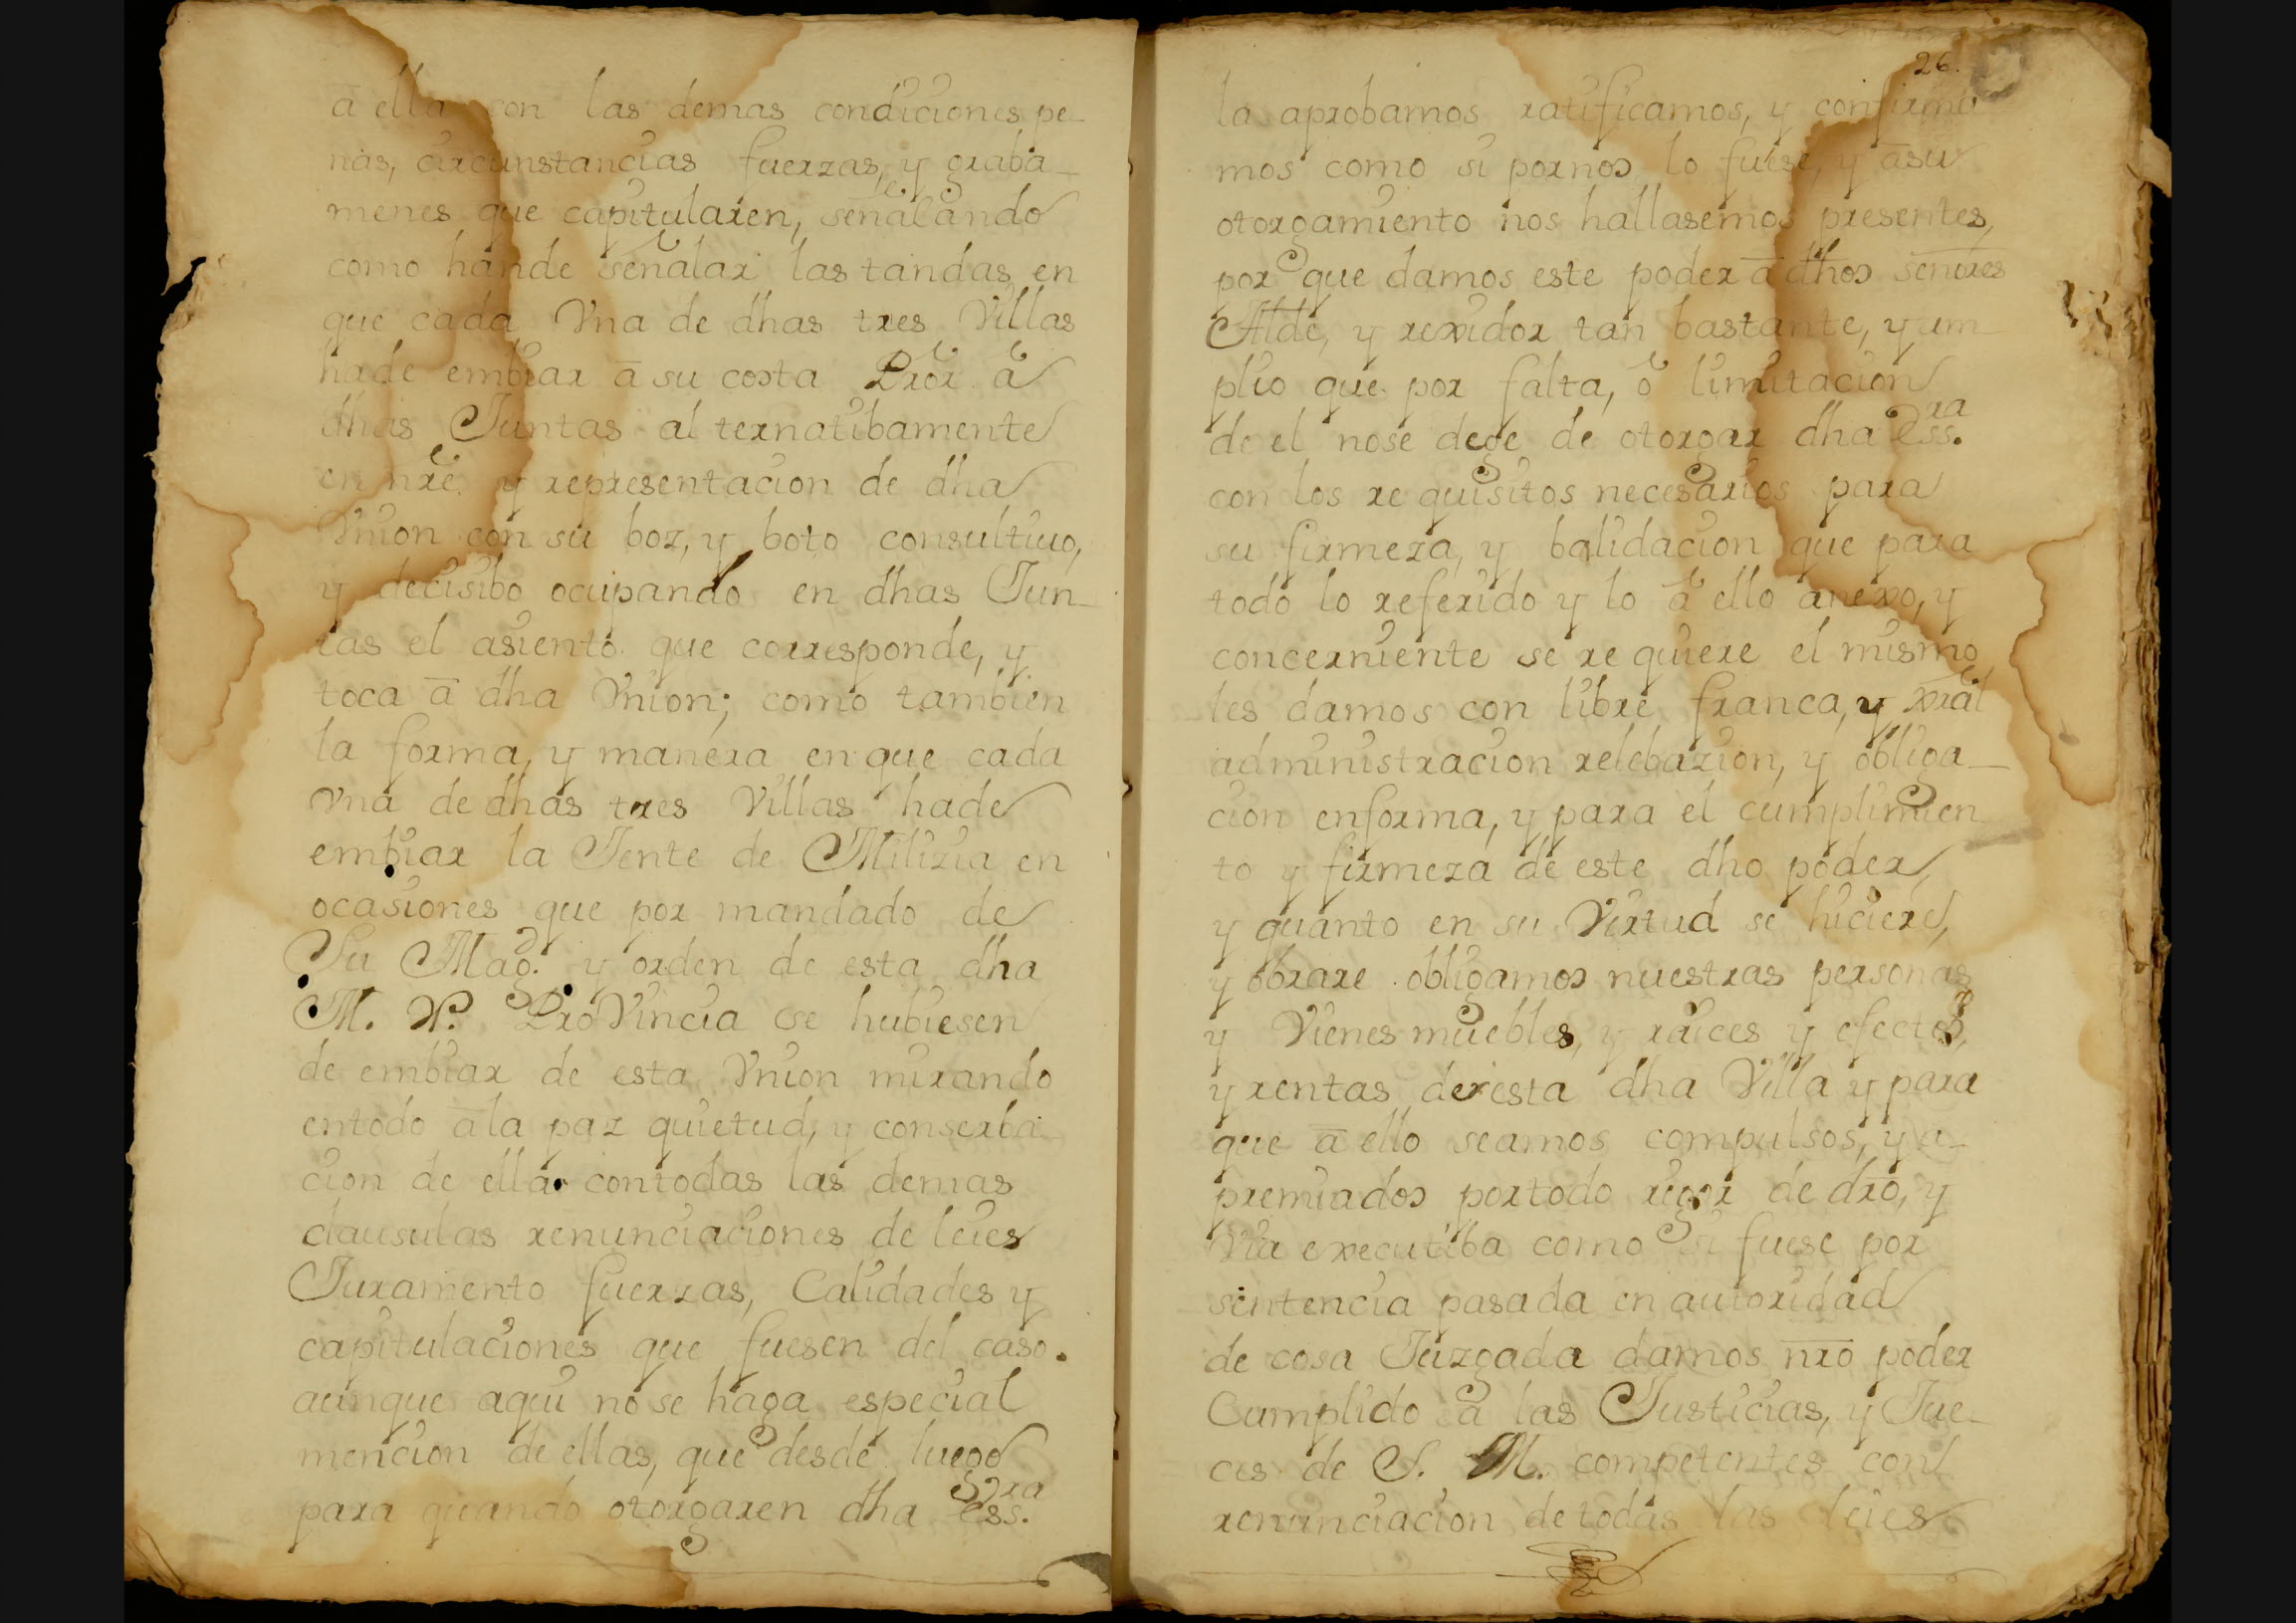 a ella con las demas condiciones pe-
nas, circunstancias fuerzas, y graba-
menes que capitularen, señalando
como hande señalar las tandas en
que cada Vna de dhas tres Villas
hade embiar a su costa Pror. a
dhas Juntas al ternatibamente
en nre. y representacion de dha
Vnion con su boz, y boto consultiuo,
y decisibo ocupando en dhas Jun-
tas el asiento que corresponde, y
toca a dha Vnion; como tambien
la forma, y manera en que cada
vna de dhas tres Villas hade
embiar la Jente de Milizia en
ocasiones que por mandado de
Su Mag. y orden de esta dha
M. N. ProVincia se hubiesen
de embiar de esta Vnion mirando
entodo ala paz quietud, y conserba-
cion de ella contodas las demas
clausulas renunciaciones de leies
Juramento fuerzas, Calidades y
capitulaciones que fuesen del caso.
aunque aqui no se haga especial
mencion de ellas, que desde luego
para quando otorgaren dha ess.ra
26.
la aprobamos ratificamos, y confirma
mos como si pornos lo fuese, y asu
otorgamiento nos hallasemos presentes,
por que damos este poder a dhos señores
Alde, y rexidor tan bastante, y am-
plio que por falta, o limitacion
de el nose dege de otorgar dha Ess.ra
con los re quisitos necesarios para
su firmeza, y balidacion que para
todo lo referido y lo a ello anexo, y
concerniente se re quiere el mismo
les damos con libre franca, y xral
administracion relebazion, y obliga-
cion enforma, y para el cumplimien
to y firmeza de este dho poder,
y quanto en su Virtud se hiciere,
y obrare obligamos nuestras personas
y Vienes muebles, y raices y efectos,
y rentas de esta dha Villa y para
que a ello seamos compulsos, y a-
premiados portodo rigor de dro, y
Via executiba como si fuese por
sentencia pasada en autoridad
de cosa Juzgada damos nro poder
Cumplido a las Justicias, y Jue-
ces de S. M. competentes con
renunciacion de todas las leies